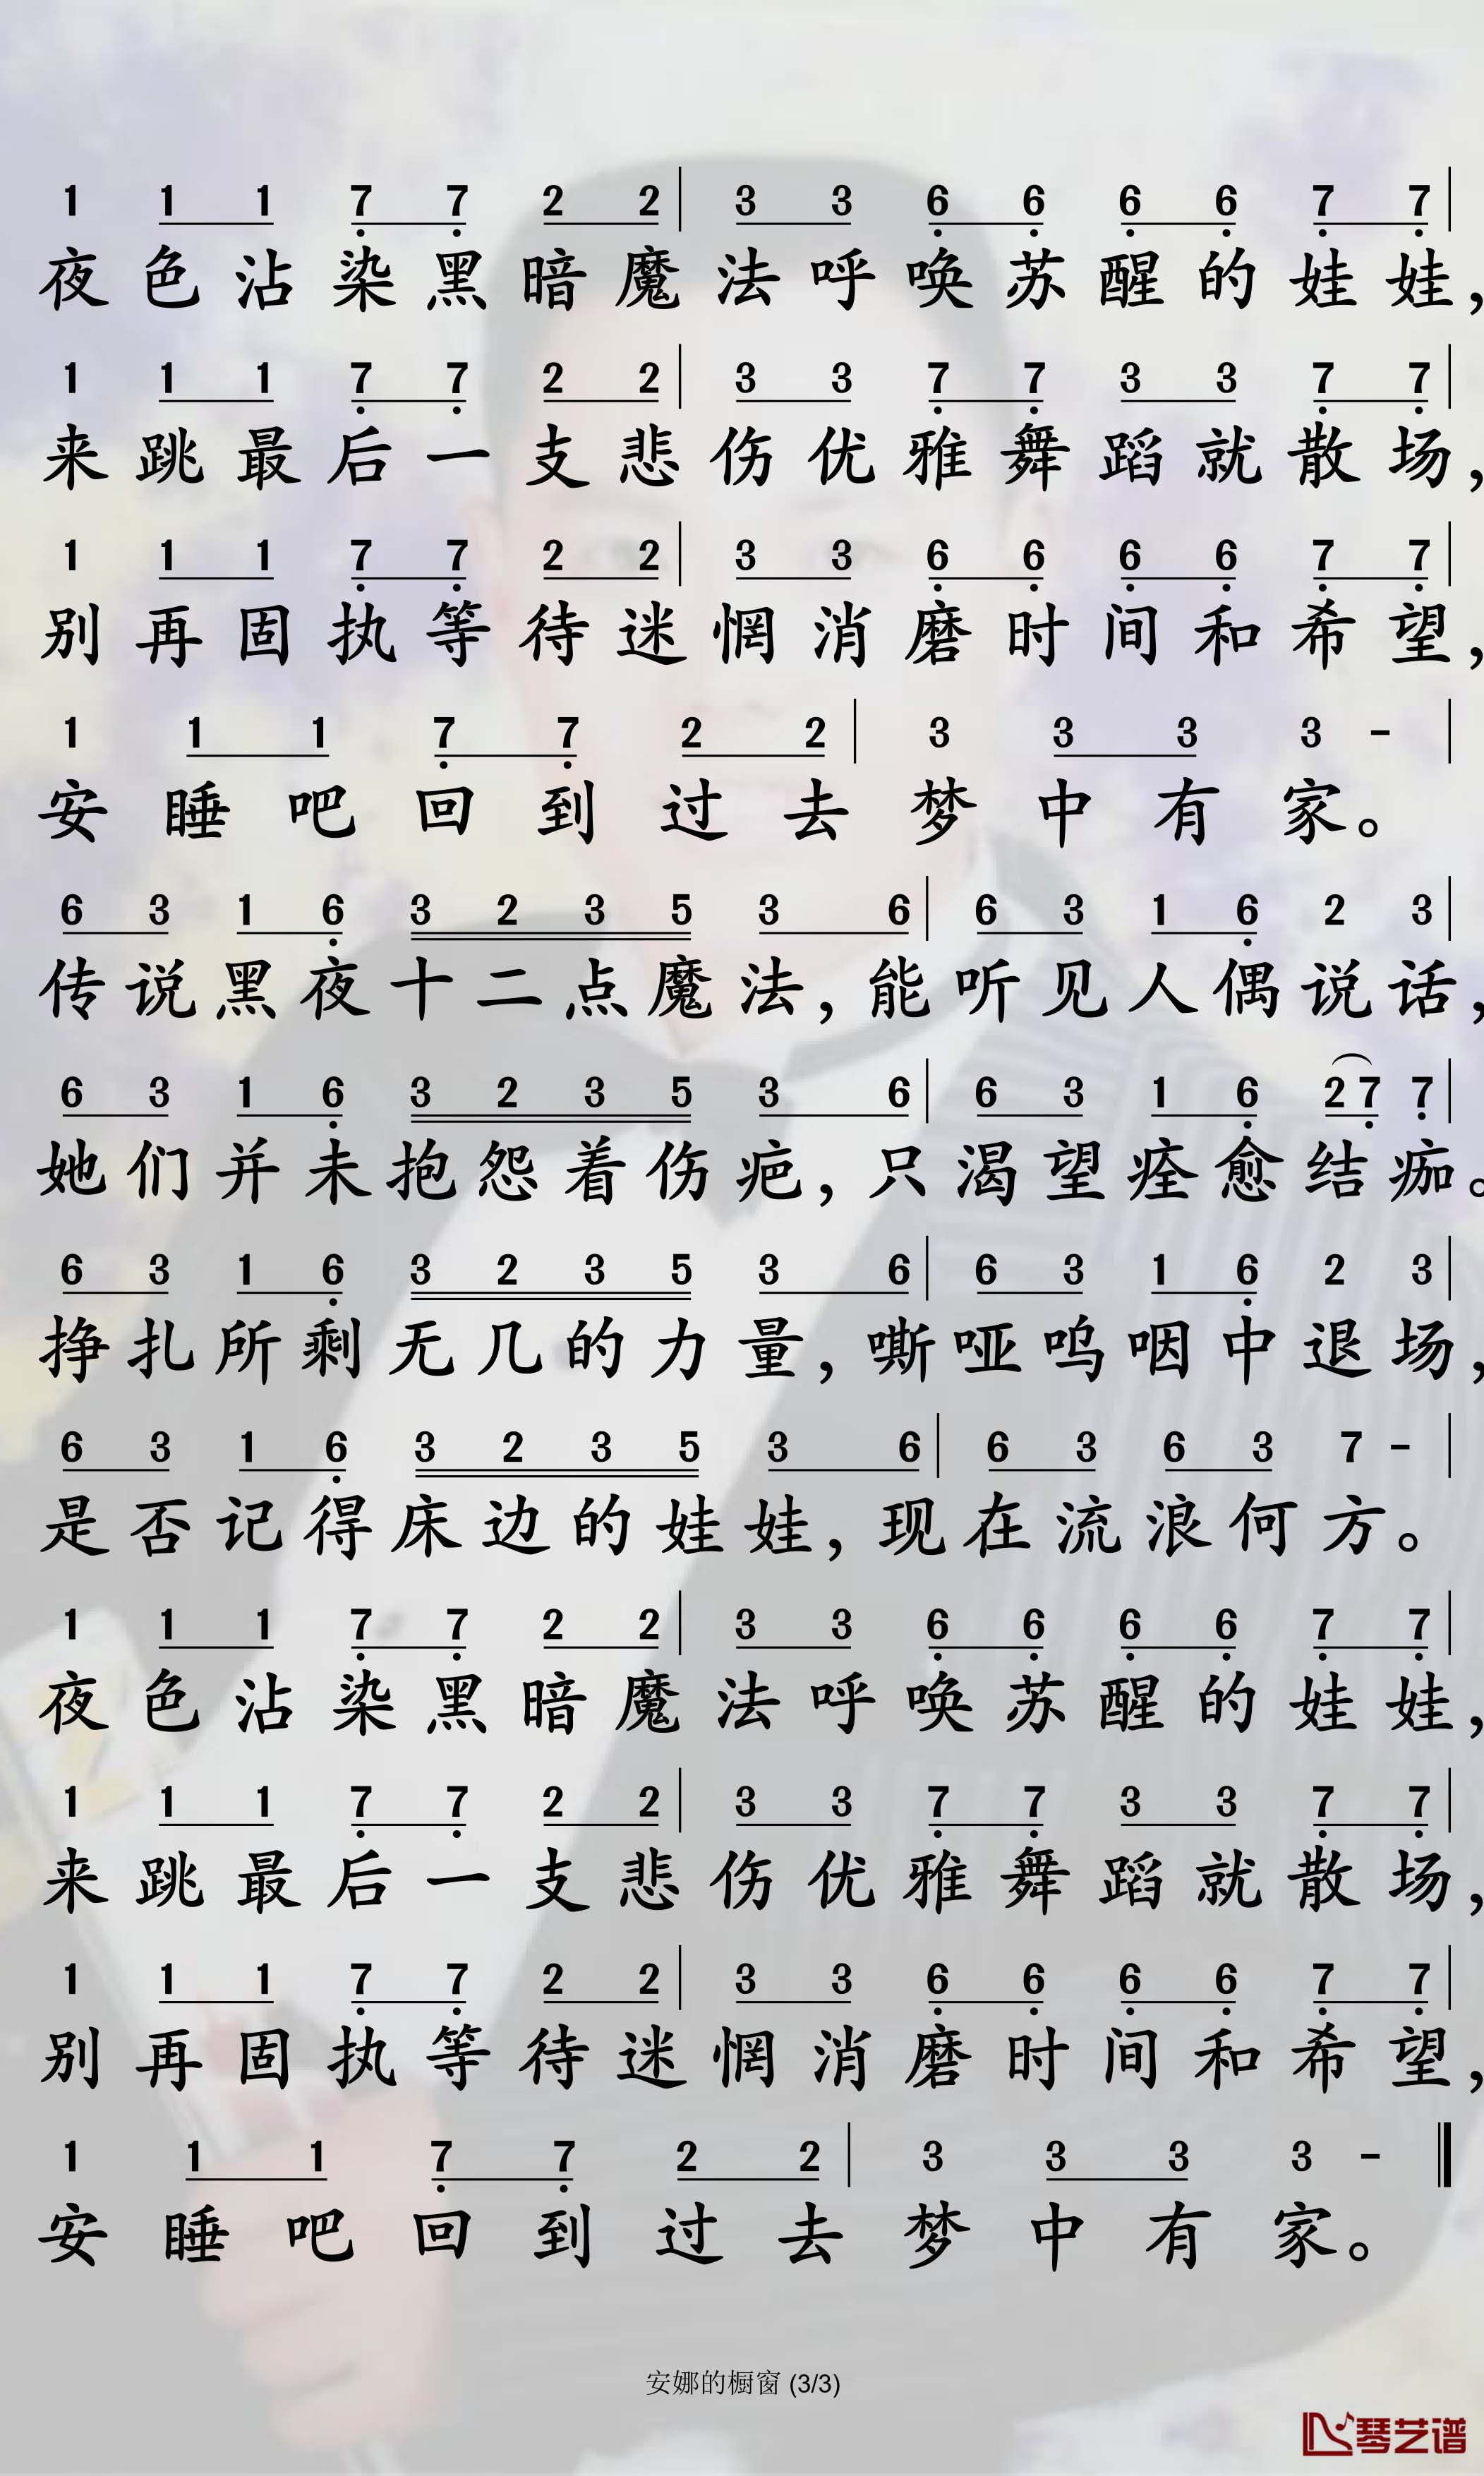 1 1 1 7 7 2 2 | 3 3 6 6 6 6 7 7 |
夜色沾染黑暗魔法呼唤苏醒的娃娃，
1 1 1 7 7 2 2 | 3 3 7 7 3 3 7 7 |
来跳最后一支悲伤优雅舞蹈就散场，
1 1 1 7 7 2 2 | 3 3 6 6 6 6 7 7 |
别再固执等待迷惘消磨时间和希望，
1 1 1 7 7 2 2 | 3 3 3 3 - |
安睡吧回到过去梦中有家。
6 3 1 6 3 2 3 5 3 6 | 6 3 1 6 2 3 |
传说黑夜十二点魔法，能听见人偶说话，
6 3 1 6 3 2 3 5 3 6 | 6 3 1 6 2 7 7 |
她们并未抱怨着伤疤，只渴望痊愈结痂。
6 3 1 6 3 2 3 5 3 6 | 6 3 1 6 2 3 |
挣扎所剩无几的力量，嘶哑呜咽中退场，
6 3 1 6 3 2 3 5 3 6 | 6 3 6 3 7 - |
是否记得床边的娃娃，现在流浪何方。
1 1 1 7 7 2 2 | 3 3 6 6 6 6 7 7 |
夜色沾染黑暗魔法呼唤苏醒的娃娃，
1 1 1 7 7 2 2 | 3 3 7 7 3 3 7 7 |
来跳最后一支悲伤优雅舞蹈就散场，
1 1 1 7 7 2 2 | 3 3 6 6 6 6 7 7 |
别再固执等待迷惘消磨时间和希望，
1 1 1 7 7 2 2 | 3 3 3 3 - ‖
安睡吧回到过去梦中有家。
安娜的橱窗 (3/3)
琴艺谱